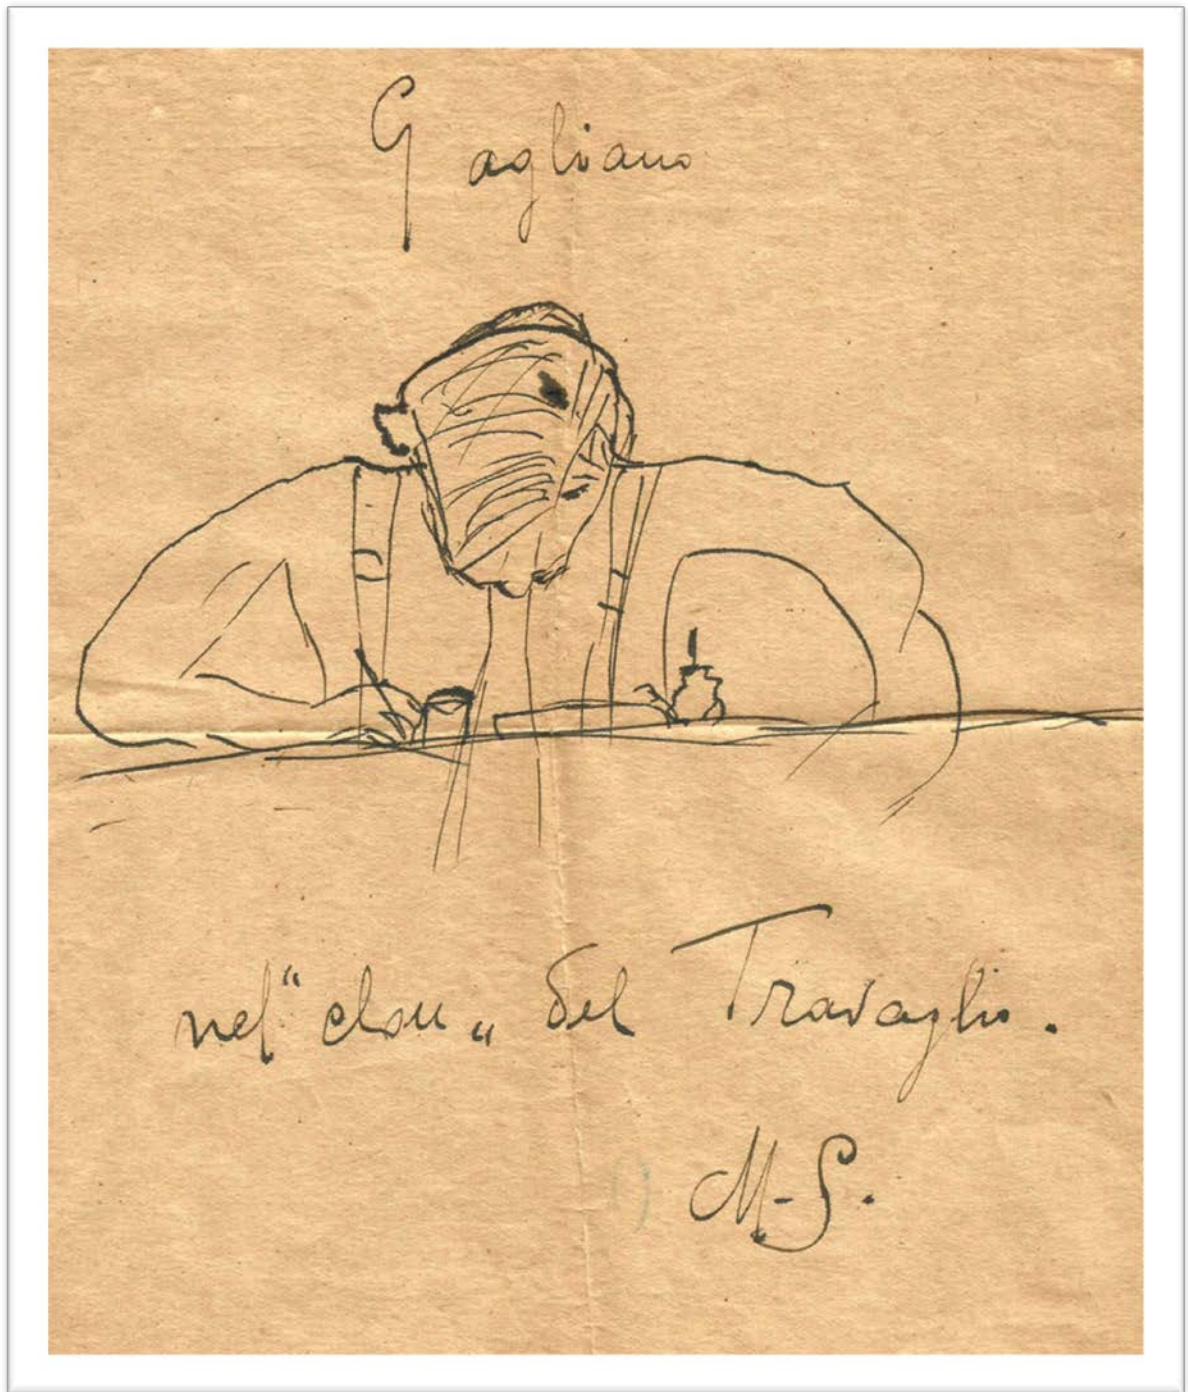 Gagliano
nel "clou" del Travaglio.
M-S.